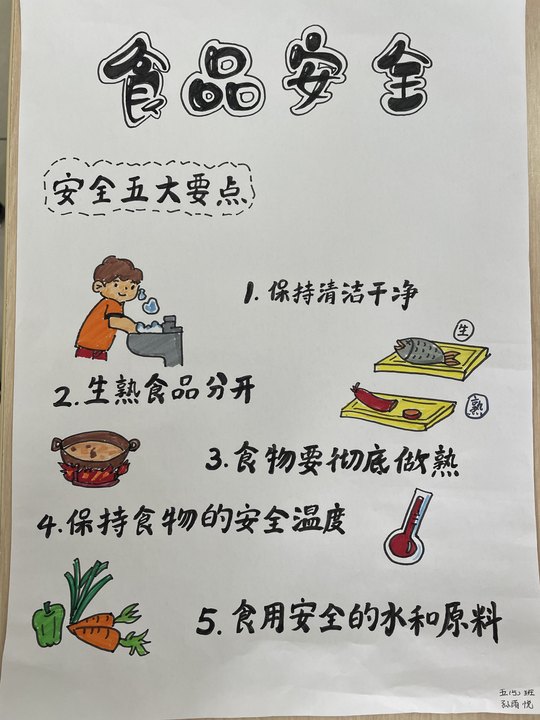 食品安全
安全五大要点
1. 保持清洁干净
生
2. 生熟食品分开
熟
3. 食物要彻底做熟
4. 保持食物的安全温度
5. 食用安全的水和原料